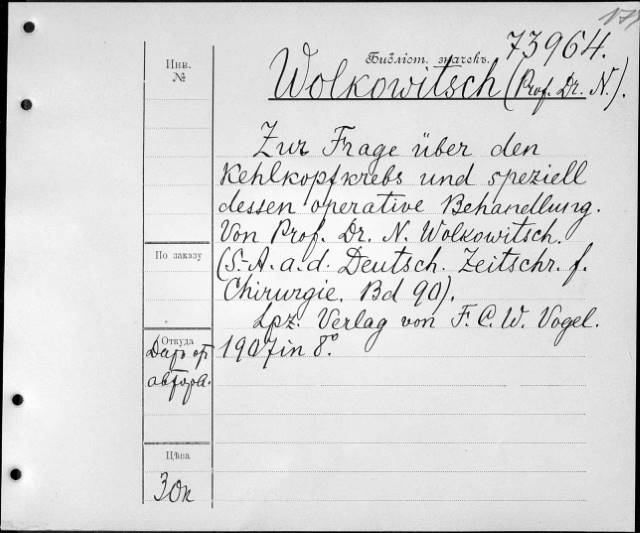 73964.
Инв.
№
Библіот. значекъ.
Wolkowitsch (Prof. Dr. N.).
Zur Frage über den
Kehlkopfkrebs und speziell
dessen operative Behandlung.
Von Prof. Dr. N. Wolkowitsch.
По заказу
(S.-A. a. d. Deutsch. Zeitschr. f.
Chirurgie. Bd 90).
Lpz. Verlag von F. C. W. Vogel.
Откуда
Даръ от
автора.
1907 in 8°.
Цѣна
30к